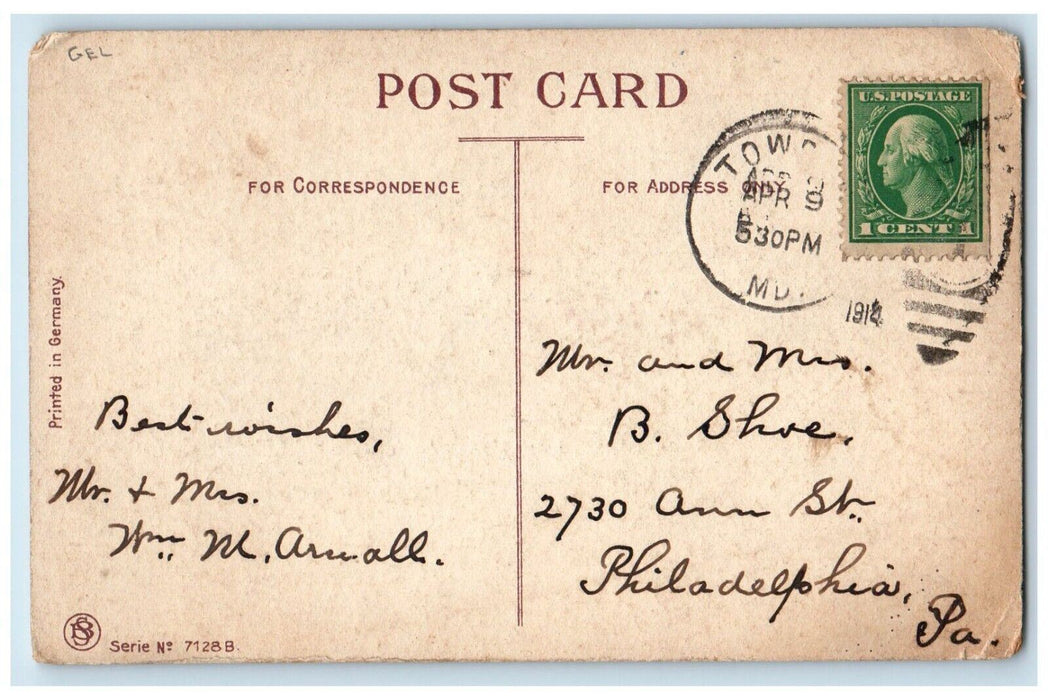 GEL
POST CARD
FOR CORRESPONDENCE
FOR ADDRESS ONLY
U.S. POSTAGE
1 CENT 1
APR 9
530PM
MD.
Printed in Germany.
Best wishes,
Mr. + Mrs.
Wm. M. Arwall.
Mr. and Mrs.
B. Shoe,
2730 Ann St.
Philadelphia,
Pa.
Serie Nº 7128 B.